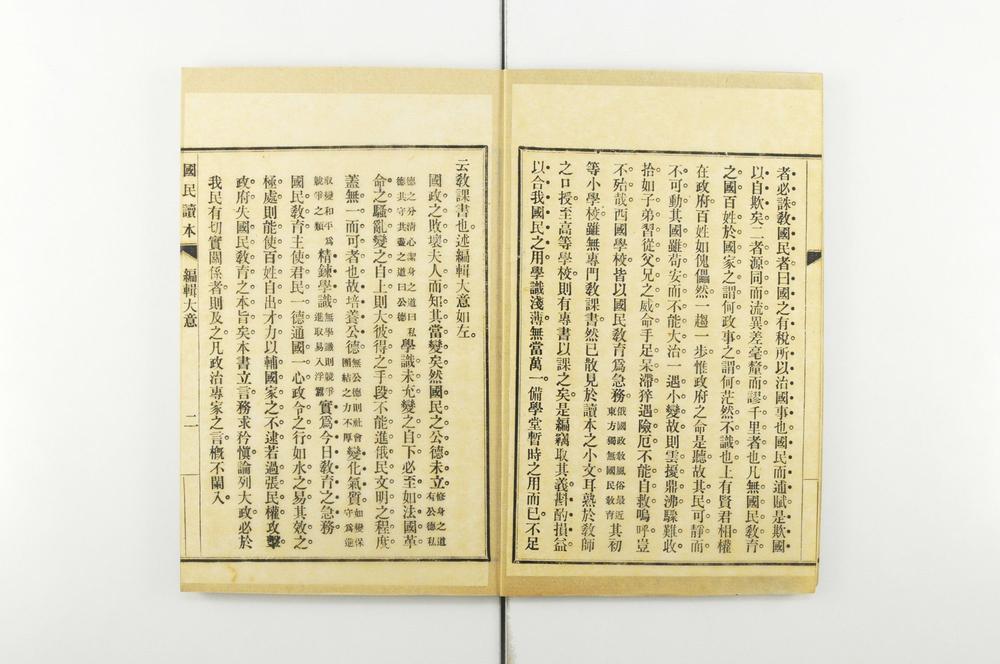 者必誅教國民者曰國之有稅所以治國事也國民而逋賦是欺國
以自欺矣二者源同而流異差毫釐而謬千里者也凡無國民教育
之國百姓於國家之謂何政事之謂何茫然不識也上有賢君相權
在政府百姓如傀儡然一趨一步惟政府之命是聽故其民可靜而
不可動其國雖苟安而不能大治一遇小變故則雲擾鼎沸驟難收
拾如子弟習從父兄之威命手足呆滯猝遇險厄不能自救嗚呼豈
不殆哉西國學校皆以國民教育爲急務俄國政敎風俗最近東方獨無國民敎育其初
等小學校雖無專門教課書然已散見於讀本之小文耳熟於敎師
之口授至高等學校則有專書以課之矣是編竊取其義斟酌損益
以合我國民之用學識淺薄無當萬一備學堂暫時之用而已不足
云敎課書也述編輯大意如左
國政之敗壞夫人而知其當變矣然國民之公德未立修身之道有公德私
德之分清心潔身之道曰私德共守共盡之道曰公德學識未充變之自下必至如法國革
命之騷亂變之自上則大彼得之手段不能進俄民文明之程度
蓋無一而可者也故培養公德無公德則社會團結之力不厚變化氣質如變保守爲進
取變和平爲競爭之類精鍊學識無學識則競爭進取易入浮囂實爲今日敎育之急務
國民敎育主使君民一德通國一心政令之行如水之易其效之
極處則能使百姓自出才力以輔國家之不逮若過張民權攻擊
政府失國民敎育之本旨矣本書立言務求矜愼論列大政必於
我民有切實關係者則及之凡政治專家之言槪不闌入
國民讀本
編輯大意
二